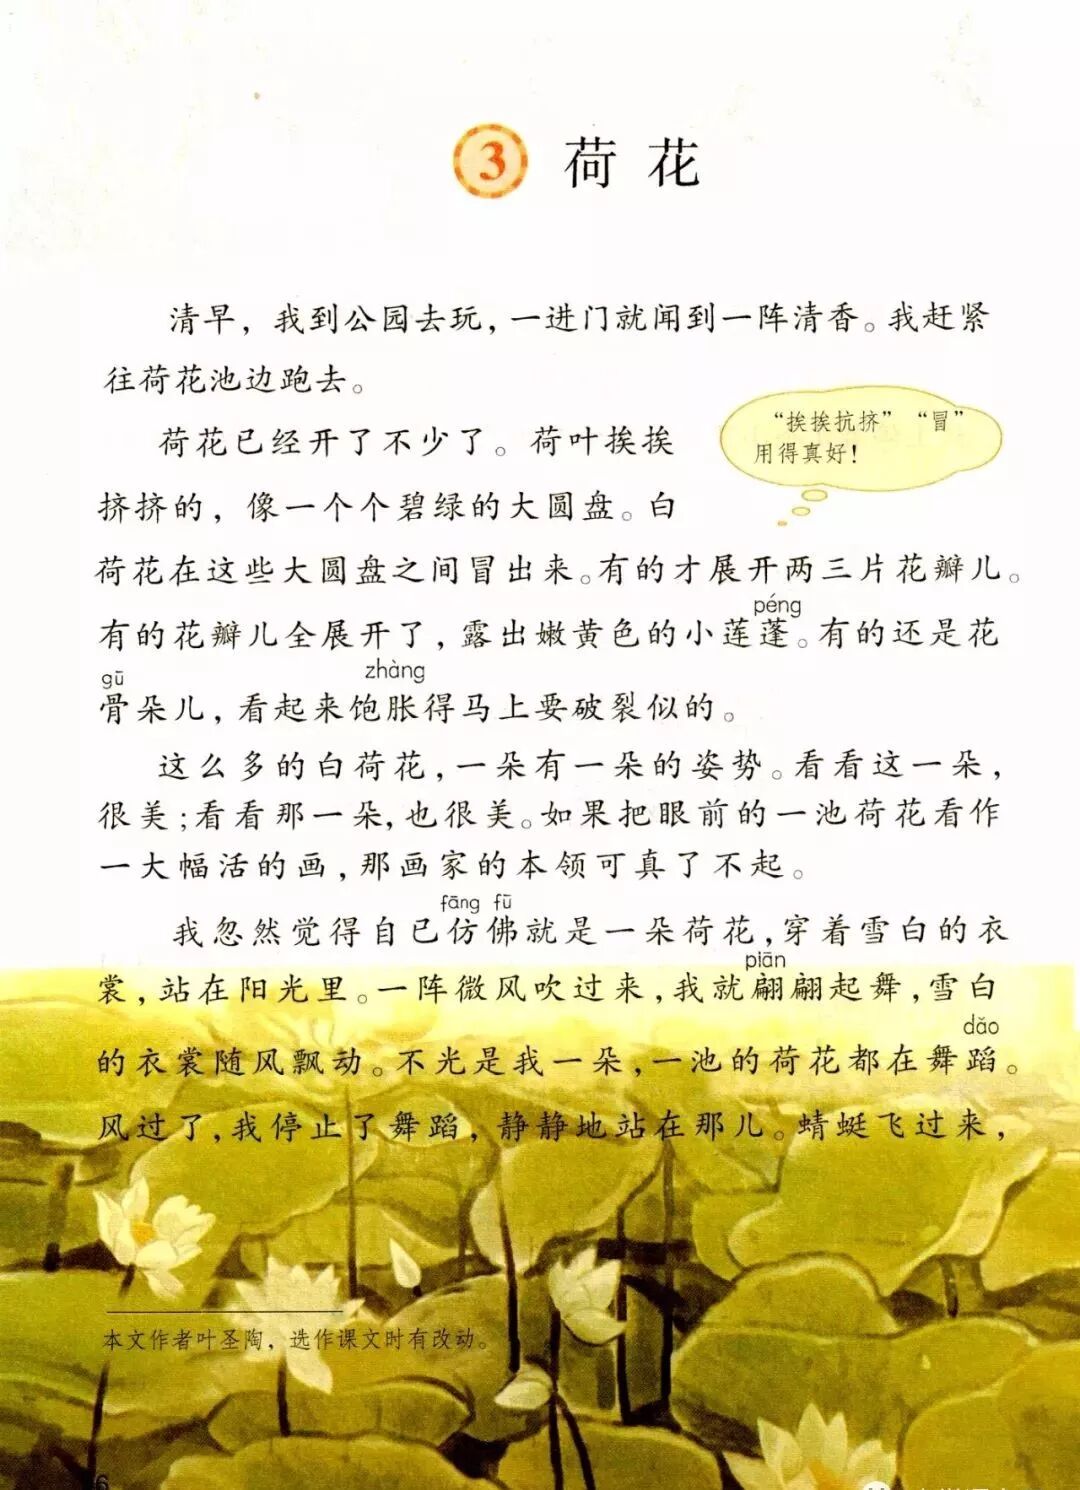 3 荷花
清早，我到公园去玩，一进门就闻到一阵清香。我赶紧
往荷花池边跑去。
荷花已经开了不少了。荷叶挨挨
挤挤的，像一个个碧绿的大圆盘。白
“挨挨抗挤”“冒”
用得真好！
荷花在这些大圆盘之间冒出来。有的才展开两三片花瓣儿。
péng
有的花瓣儿全展开了，露出嫩黄色的小莲蓬。有的还是花
gū zhàng
骨朵儿，看起来饱胀得马上要破裂似的。
这么多的白荷花，一朵有一朵的姿势。看看这一朵，
很美；看看那一朵，也很美。如果把眼前的一池荷花看作
一大幅活的画，那画家的本领可真了不起。
fǎng fú
我忽然觉得自己仿佛就是一朵荷花，穿着雪白的衣
piān
裳，站在阳光里。一阵微风吹过来，我就翩翩起舞，雪白
dǎo
的衣裳随风飘动。不光是我一朵，一池的荷花都在舞蹈。
风过了，我停止了舞蹈，静静地站在那儿。蜻蜓飞过来，
本文作者叶圣陶，选作课文时有改动。
6